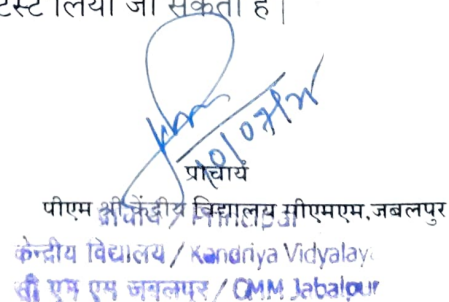 टेस्ट लिया जा सकता है |
प्राचार्य
पीएम श्री केंद्रीय विद्यालय सीएमएम,जबलपुर
प्राचार्य / Principal
केन्द्रीय विद्यालय / Kendriya Vidyalay
सी एम एम जबलपुर / CMM Jabalpur